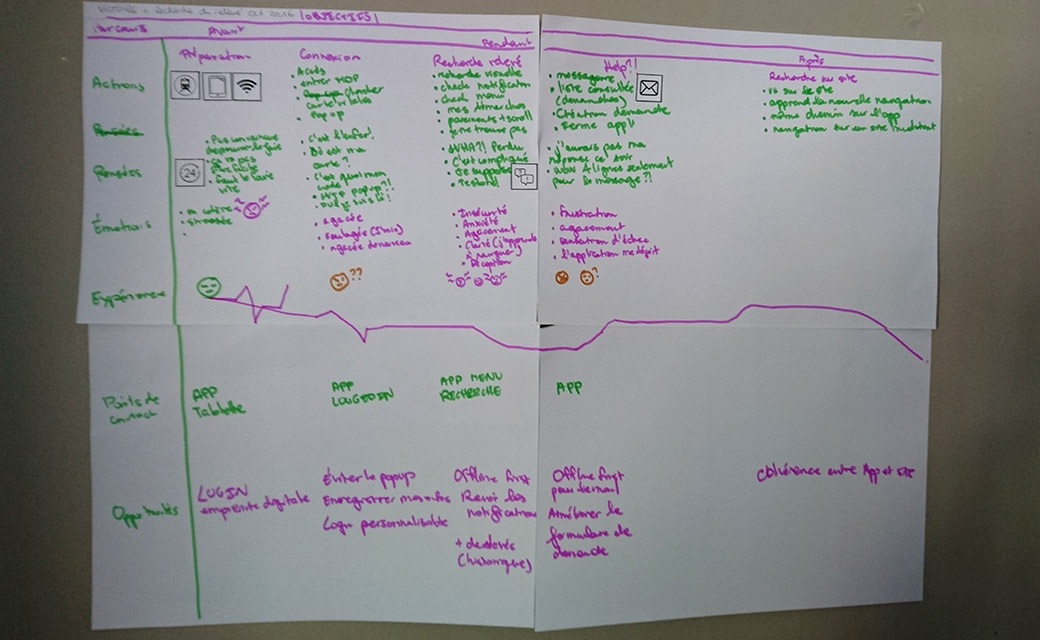 OBJECTIFS
Parcours
Avant
Pendant
Après
Préparation
Connexion
Recherche relevé
Help?!
Recherche sur site
Actions
• Accès
• entrer MDP
chercher
carte
• Pop up
• recherche visuelle
• check notification
• check menu
• mes démarches
• paiements + scroll
• je ne trouve pas
• messagerie
• liste consultée
(demandes)
• Création demande
• Ferme appli
• va sur le site
• apprend la nouvelle navigation
• même chemin sur l'app
• navigation sur un site
Pensées
Pensées
24
• Pas
• ça va pas
• faut le faire
vite
• c'est l'enfer!
• Où est ma
carte?
• C'est quoi mon
code
• WTF popup?!
• Perdu
• C'est compliqué
• j'aurais pas ma
réponse ce soir
• WOW 4 lignes seulement
pour le message?!
Émotions
• en colère
• stressée
• agacée
• soulagée
• agacée
• Insécurité
• Anxiété
• Agacement
• Clarté (j'apprends
à naviguer)
• Déception
• Frustration
• agacement
• sensation d'échec
• l'application me déçoit
Expérience
??
?
Points de
contact
APP
Tablette
APP
APP MENU
RECHERCHE
APP
Opportunités
LOGIN
empreinte digitale
Éviter le popup
Enregistrer mes infos
Login personnalisable
Offline first
Revoir les
notifications
+ de relevés
(historique)
Offline first
Améliorer le
formulaire de
demande
Cohérence entre App et site